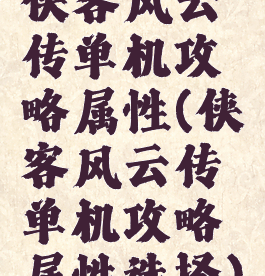 侠客风云
传单机攻
略属性(侠
客风云传
单机攻略
属性选择)